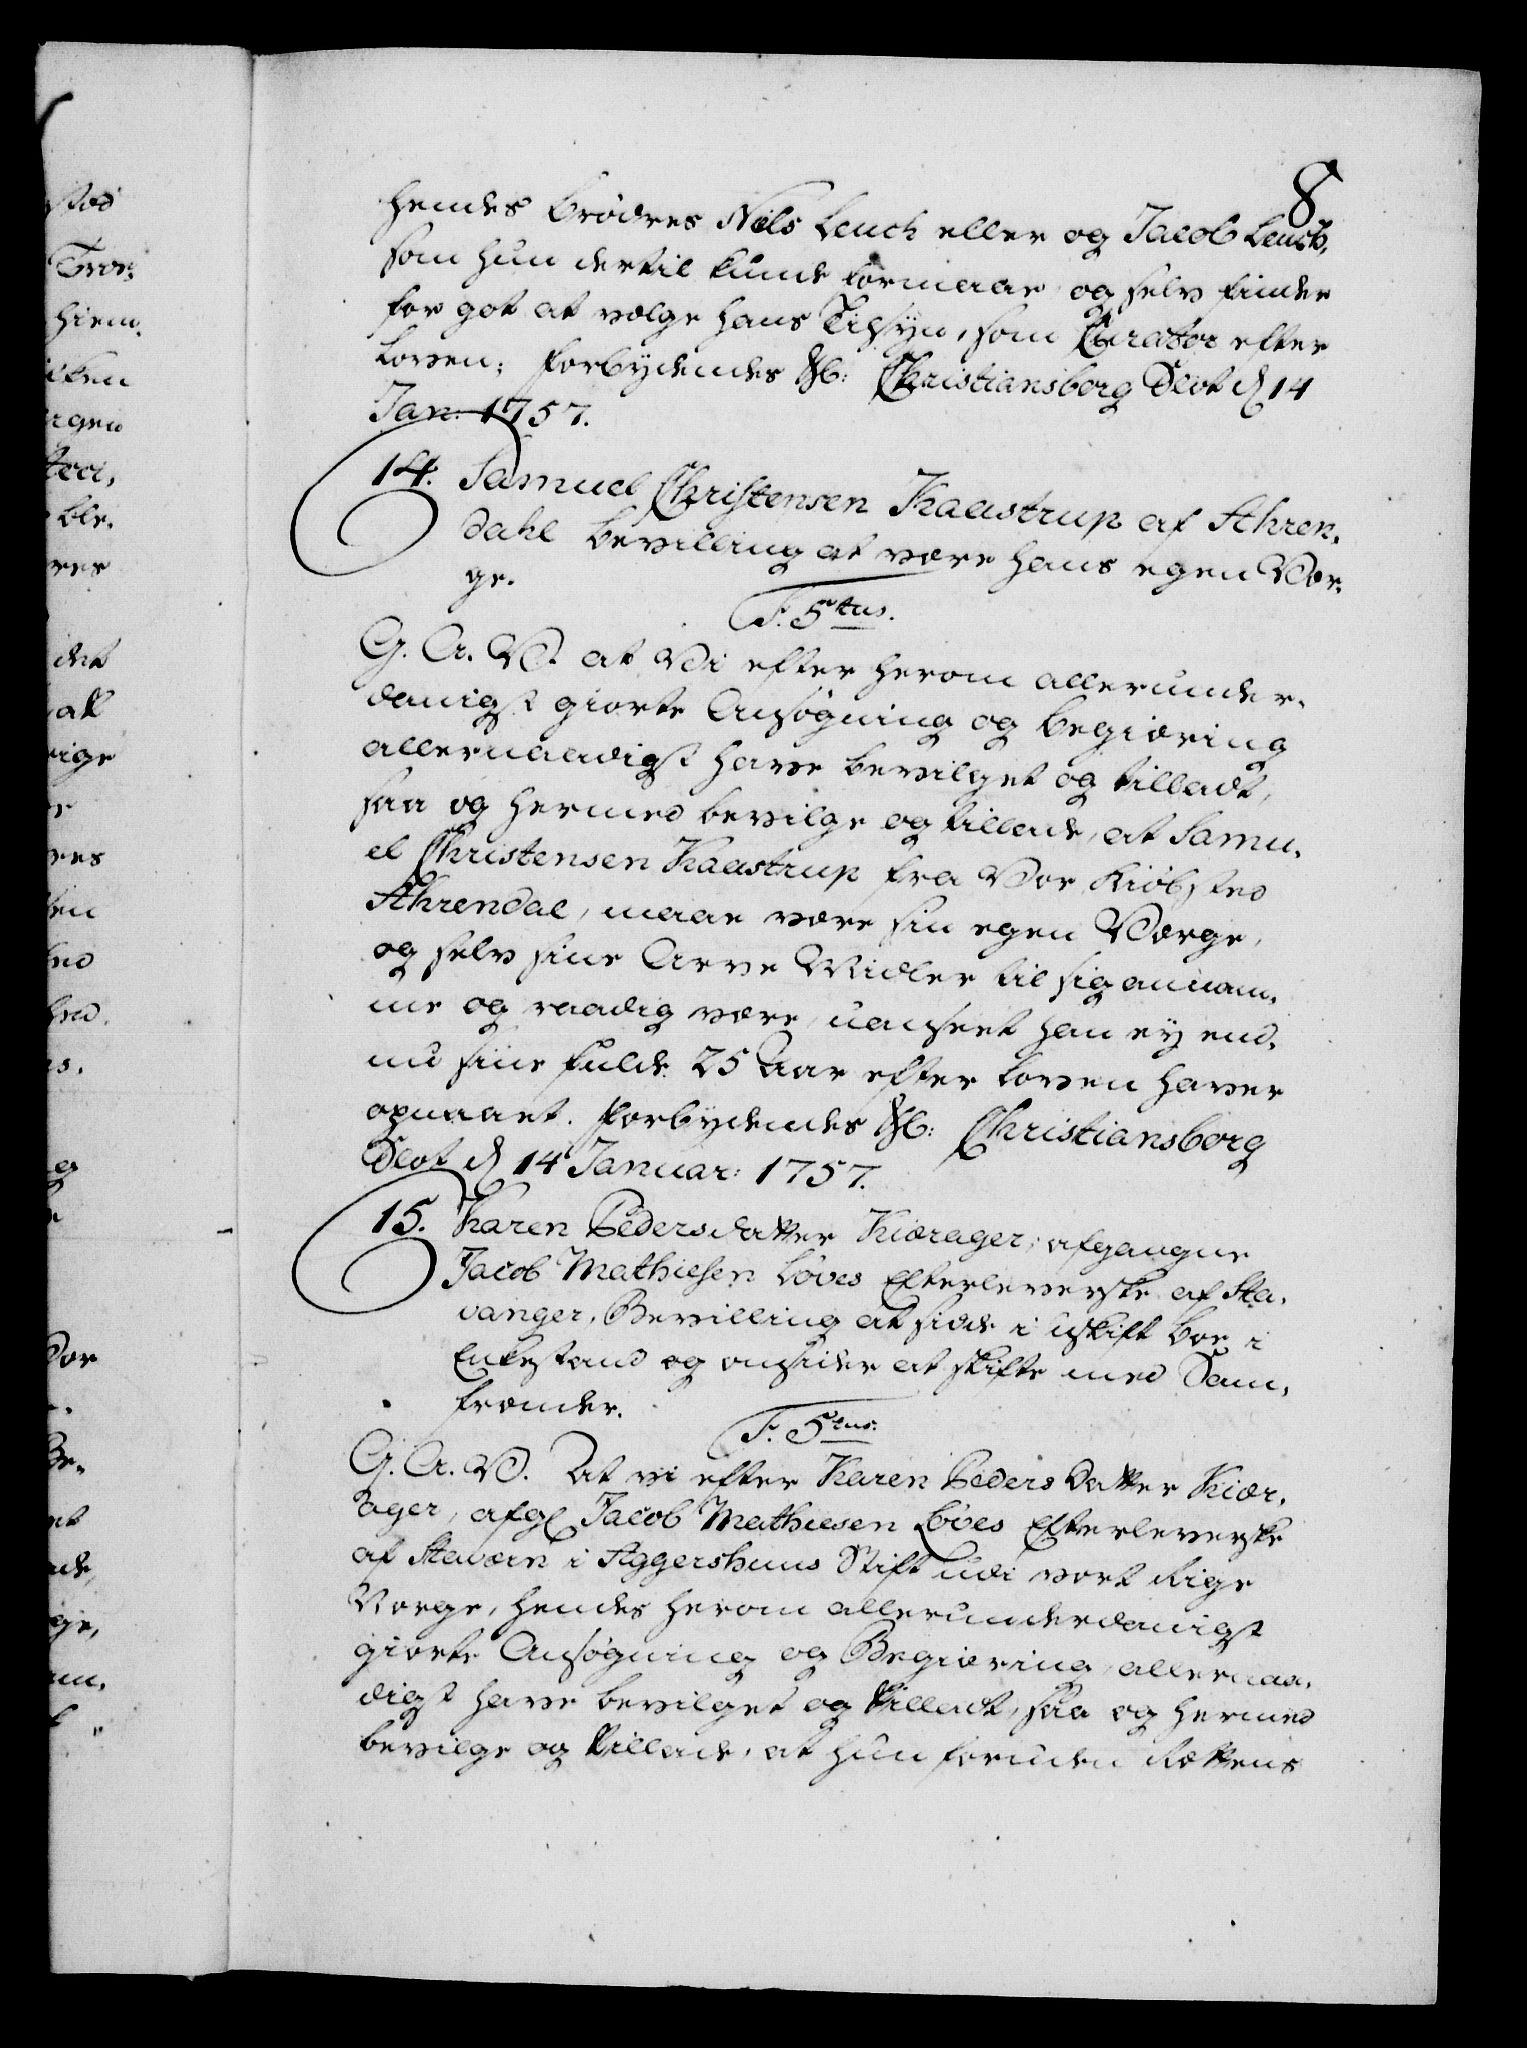 8
hendes Brødres Niels Leuch eller og Jacob Leuch,
som hun dertil kunde formaae og selv finder
for got at vælge hans Tilsyn, som Curator efter
Loven; forbydendes &c: Christiansborg Slot d 14
Jan: 1757.
14. Samuel Christensen Kaastrup af Ahren,
dahl Bevilling at være hans egen Vær,
ge.
F. 5tus.
G. A. V. at Vi efter herom allerunder,
danigst giorte Ansøgning og Begiæring
allernaadigst have bevilget og tilladt,
saa og hermed bevilge og tillade, at Samu,
el Christensen Kaastrup fra Vor Kiøbsted
Ahrendal, maae være sin egen Værge,
og selv sine Arve Midler til sig annam,
me og raadig være, uanseet han ey end,
nu sine fulde 25 Aar efter Loven haver
opnaaet. forbydendes &c: Christiansborg
Slot d 14 Januar: 1757.
15. Karen Pedersdatter Kiærager, afgangne
Jacob Mathiesen Løves Efterleverske af Sta,
vanger, Bevilling at sidde i uskift Boe i
Enkestand og onsider at skifte med Sam,
frænder.
F. 5tus.
G. A. V. At vi efter Karen Peders Datter Kiær,
ager, afgl Jacob Mathiesen Løves Efterleverske
af Staværn i Aggershuus Stift udi vort Rige
Norge, hendes herom allerunderdanigst
giorte Ansøgning og Begiæring, allernaa,
digst have bevilget og tilladt, saa og hermed
bevilge og tillade, at hun foruden Rettens